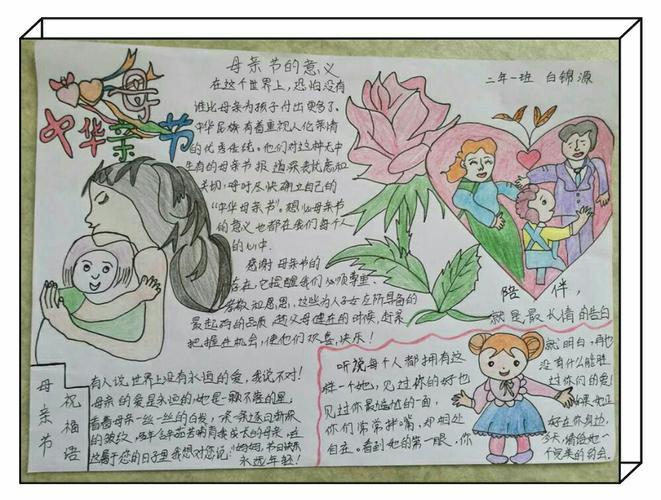 中华母亲节
母亲节的意义
二年一班 白锦源
在这个世界上,恐怕没有
谁比母亲为孩子付出更多了。
中华民族有着重视人伦亲情
的优秀传统。他们对这种无中
生有的母亲节报道亲表忧虑和
关切,呼吁尽快确立自己的
"中华母亲节"。想必母亲节
的意义也都在我们每个人
的心中.
感谢母亲节的
存在,它提醒我们必须掌里、
孝敬和恩恩,这些为人子女左所具备的
最起码的品质.趁父母健在的时候,赶紧
把握住机会,使他们欢喜、快乐!
陪伴,
就是最长情的告白
母亲节
祝福语
有人说世界上没有永恒的爱,我说不对!
母亲的爱是永恒的,她是一颗不落的星。
看着母亲一丝一丝的白发,一条一条逐日渐深
的皱纹,
这属于您的日子里我想对您说:妈妈,节日快乐
永远年轻!
听说每个人都拥有这
样一个她,见过你的好也
见过你最尴尬的一面,
你们常常拌嘴,却相处
自在。看到她的第一眼,你
就明白,再也
没有什么能胜
过你们的爱!
如果她正
好在你身边,
今天,请给她一
个完美的约会。